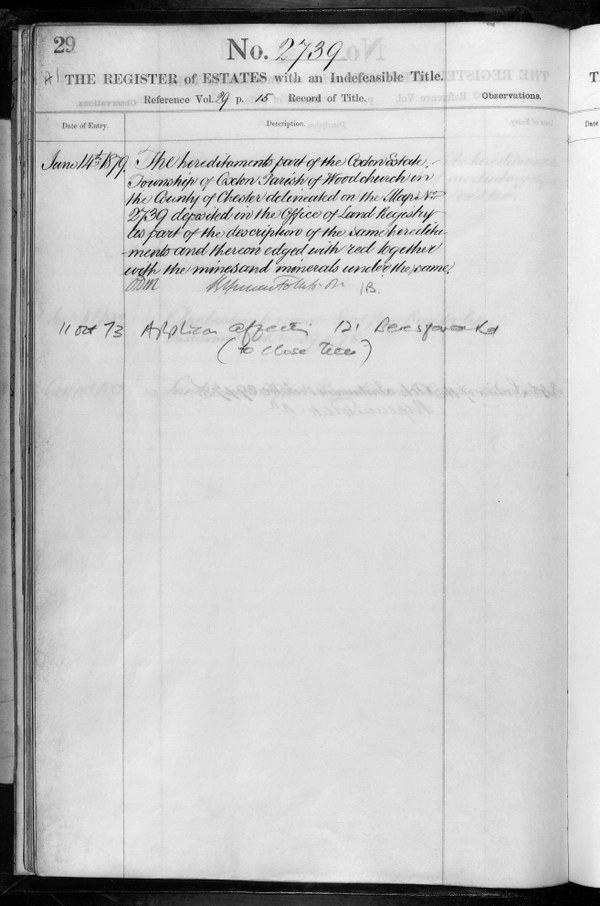 29
No. 2739
THE REGISTER of ESTATES with an Indefeasible Title.
Reference Vol. 29 p. 15 Record of Title.
Observations.
Date of Entry.
Description.
June 14th 1879. The hereditaments part of the Oxton Estate,
Township of Oxton Parish of Woodchurch in
the County of Chester delineated on the Map No.
2739 deposited in the Office of Land Registry
as part of the description of the same heredita
-ments and thereon edged with red together
with the mines and minerals under the same.
11 Oct 73 Applicon affectg 121 Beresford Rd
(to close Title)